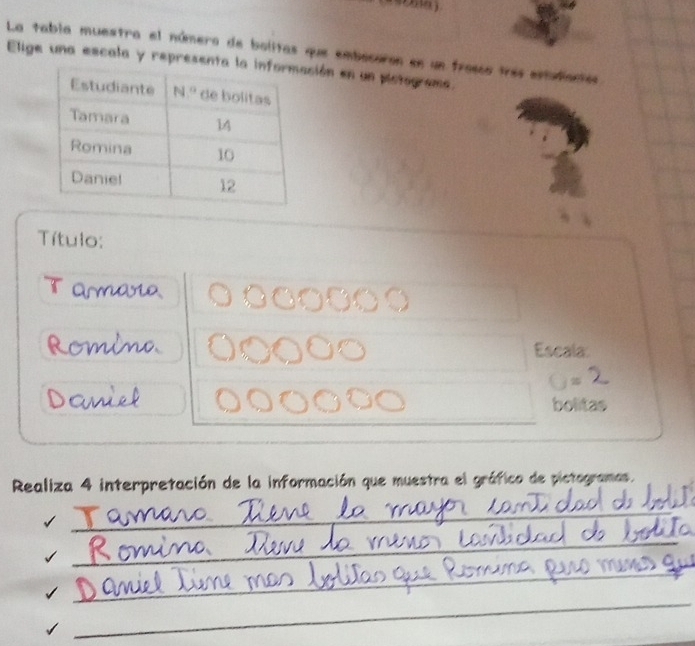 La tabla muestra el número de bolitas que embocaron en un frasco tres estudiantes
Elige una escala y representa la información en un pictograma.
Estudiante N.º de bolitas
Tamara 14
Romina 10
Daniel 12
Título:
Tamara
Romina
Escala:
= 2
Daniel
bolitas
Realiza 4 interpretación de la información que muestra el gráfico de pictogramas.
✓ Tamara Tiene la mayor cantidad de
✓ Romina Tiene la menor cantidad de bolita
✓ Daniel Tiene mas bolitas que Romina pero menos que
✓